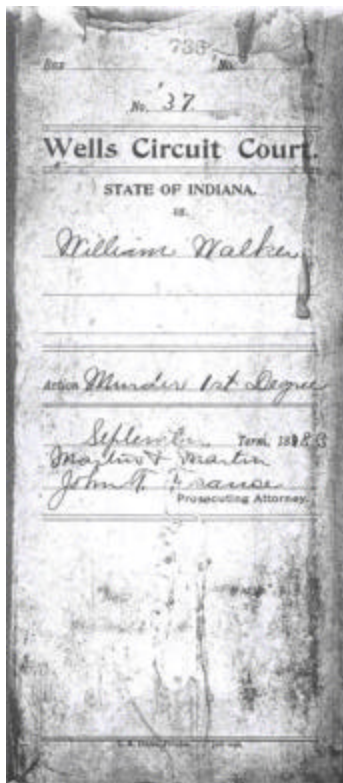 Box 736 No.
No. 37
Wells Circuit Court.
STATE OF INDIANA.
vs.
William Walker
Action Murder 1st Degree
September Term, 1883
Martin & Martin
John T. France
Prosecuting Attorney.